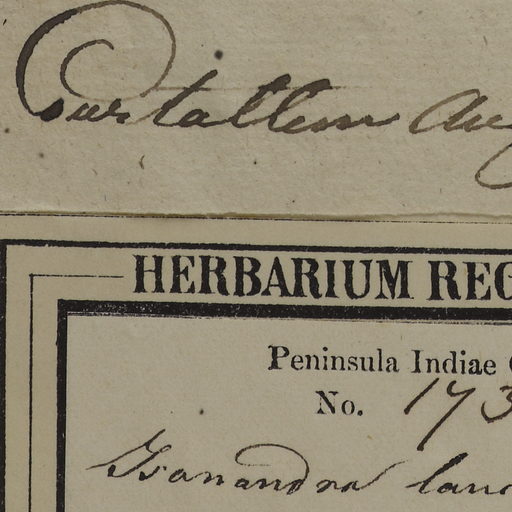 Courtallum Aug
HERBARIUM REG
Peninsula Indiae O
No. 173
Isanandra lanc